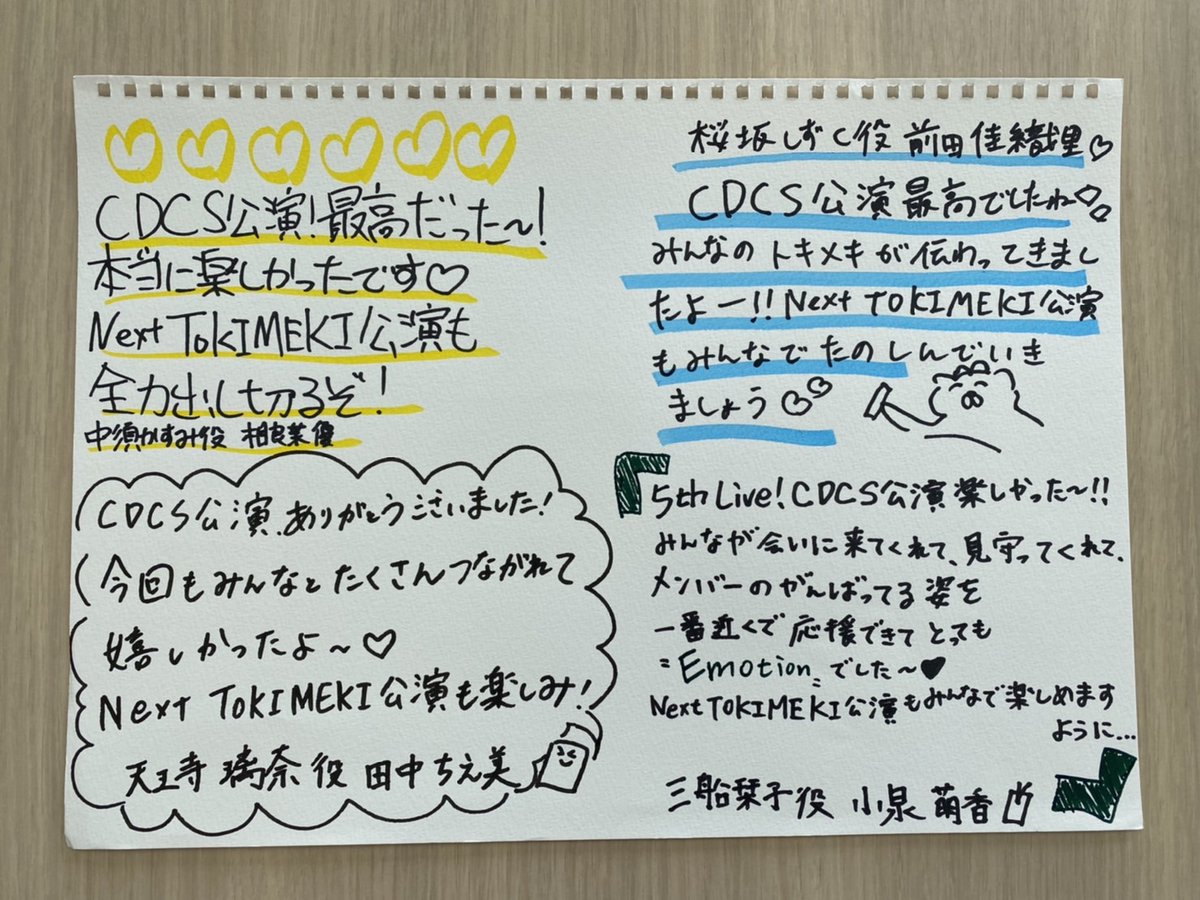 CDCS公演!最高だった〜!
本当に楽しかったです♡
Next TOKIMEKI公演も
全力出し切るぞ!
中須かすみ役 相良茉優
桜坂しずく役 前田佳織里♡
CDCS公演最高でしたね♡♡
みんなのトキメキが伝わってきまし
たよー!!Next TOKIMEKI公演
もみんなでたのしんでいき
ましょう♡♡
CDCS公演、ありがとうございました!
今回もみんなとたくさんつながれて
嬉しかったよ〜♡
Next TOKIMEKI公演も楽しみ!
天王寺璃奈役 田中ちえ美
5th Live! CDCS公演楽しかった〜!!
みんなが会いに来てくれて、見守ってくれて、
メンバーのがんばってる姿を
一番近くで応援できてとっても
"Emotion"でした〜♥
Next TOKIMEKI公演もみんなで楽しめます
ように...
三船栞子役 小泉萌香